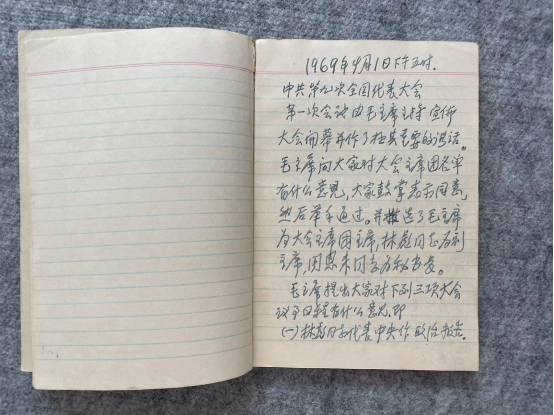 1969年4月1日下午五时.
中共第九次全国代表大会
第一次会议由毛主席主持宣佈
大会开幕并作了极其重要的讲话。
毛主席向大家对大会主席团名单
有什么意见,大家鼓掌表示同意,
然后举手通过。并推选了毛主席
为大会主席团主席,林彪同志为副
主席,周恩来同志为秘书长。
毛主席提出大家对下列三项大会
议事日程有什么意见,即
(一)林彪同志代表中央作政治报告.